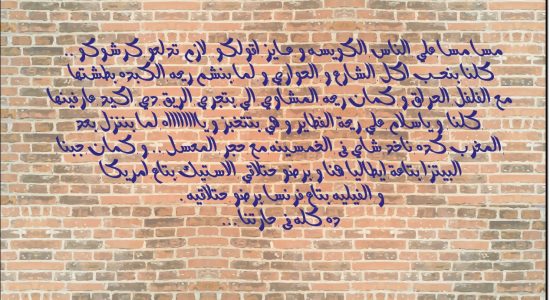 مسا مسا علي الناس الكويسه و عايز اقولكو لازم تدلعو كرشوكو ...
كلنا بنحب اكل الشارع و الحواري و لما بنشم ريحه الكبده بطشتها
مع الفلفل الحراق و كمان ريحه المشاوي الي بتجري الريق دي اكيد عارفينها
كلنا و ياسلام علي ريحة الفطاير و هي بتتخبز و يااااااااه لما بننزل بعد
المغرب كده ناخد شاي في الخمسينه مع حجر المعسل ... و كمان جبنا
البيتزا بتاعة إيطاليا هنا و برضو حتلاقي الاستيك بتاع امريكا
و الفيليه بتاع فرنسا برضو حتلاقيه .
ده كله في حارتنا ...